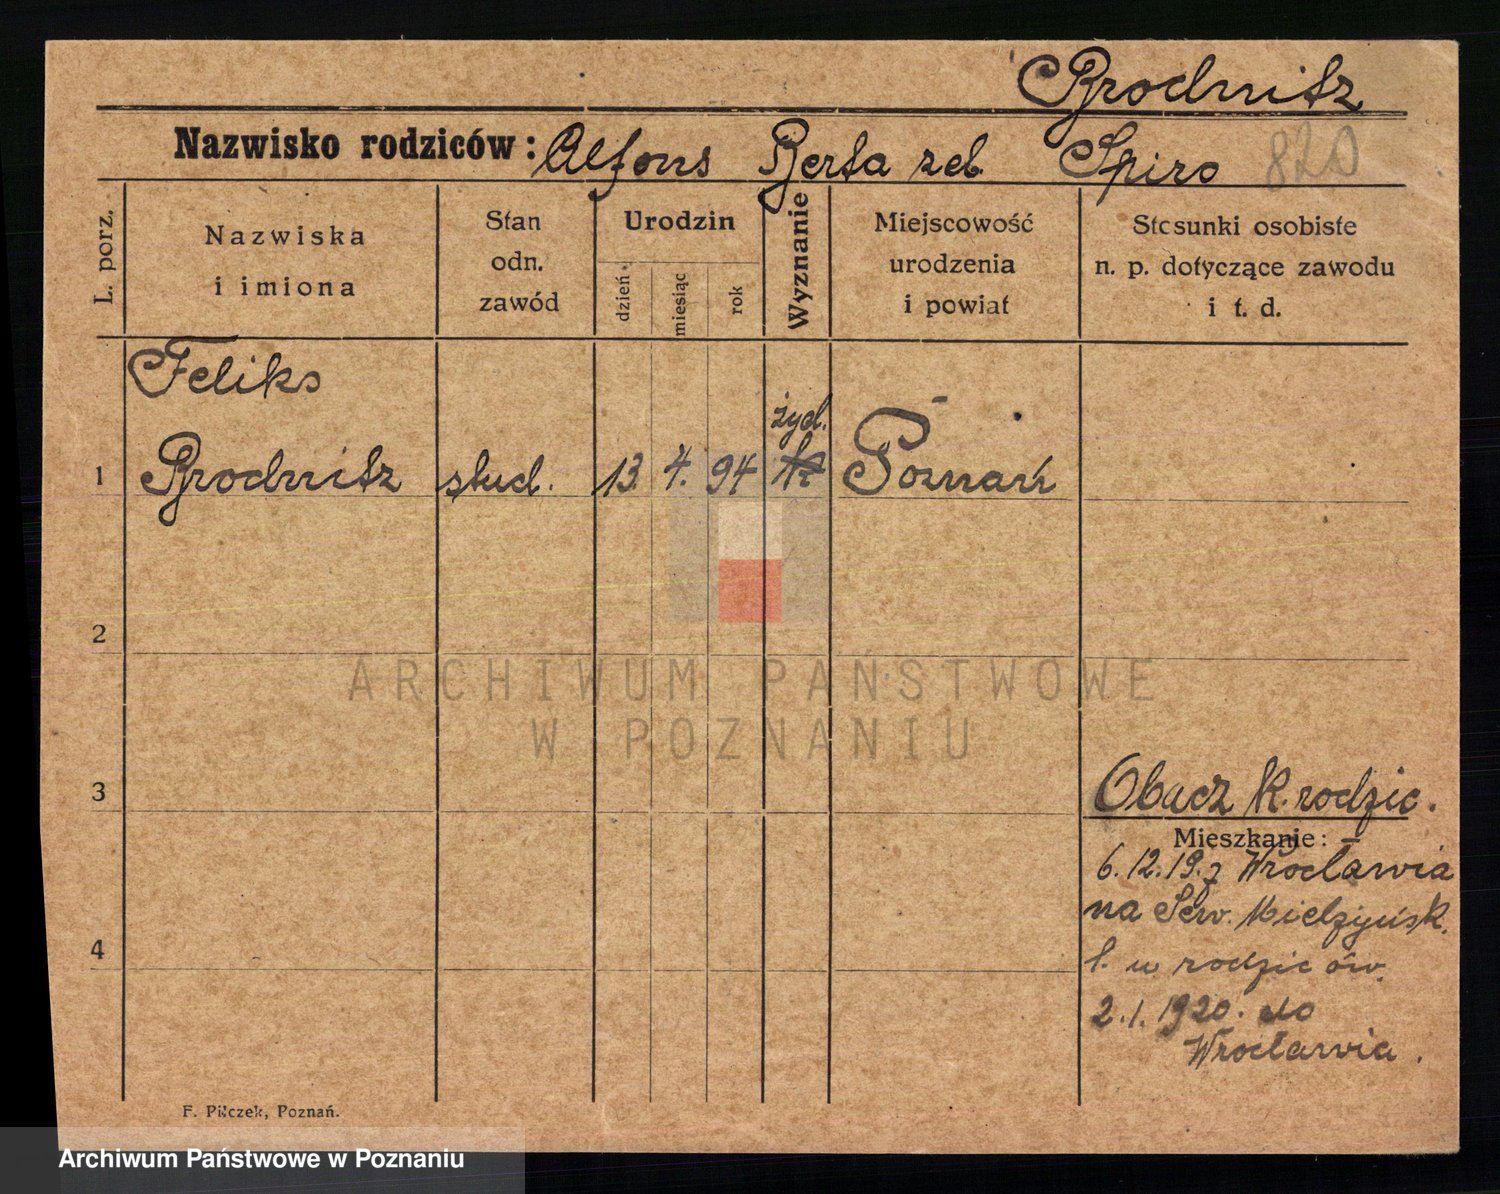 Brodnitz
Nazwisko rodziców: Alfons Berta Spiro 820
L. porz.
Nazwiska
i imiona
Stan
odn.
zawód
Urodzin
dzień
miesiąc
rok
Wyznanie
Miejscowość
urodzenia
i powiat
Stosunki osobiste
n. p. dotyczące zawodu
i t. d.
Feliks
żyd.
1 Brodnitz stud. 13. 4. 94 Poznań
2
ARCHIWUM PAŃSTWOWE
W POZNANIU
3
Obacz K. rodzic.
Mieszkanie:
6.12.19. z Wrocławia
na Sew. Mielżyńsk.
1. u rodziców.
4
2.1.1920. do
Wrocławia.
F. Pilczek, Poznań.
Archiwum Państwowe w Poznaniu